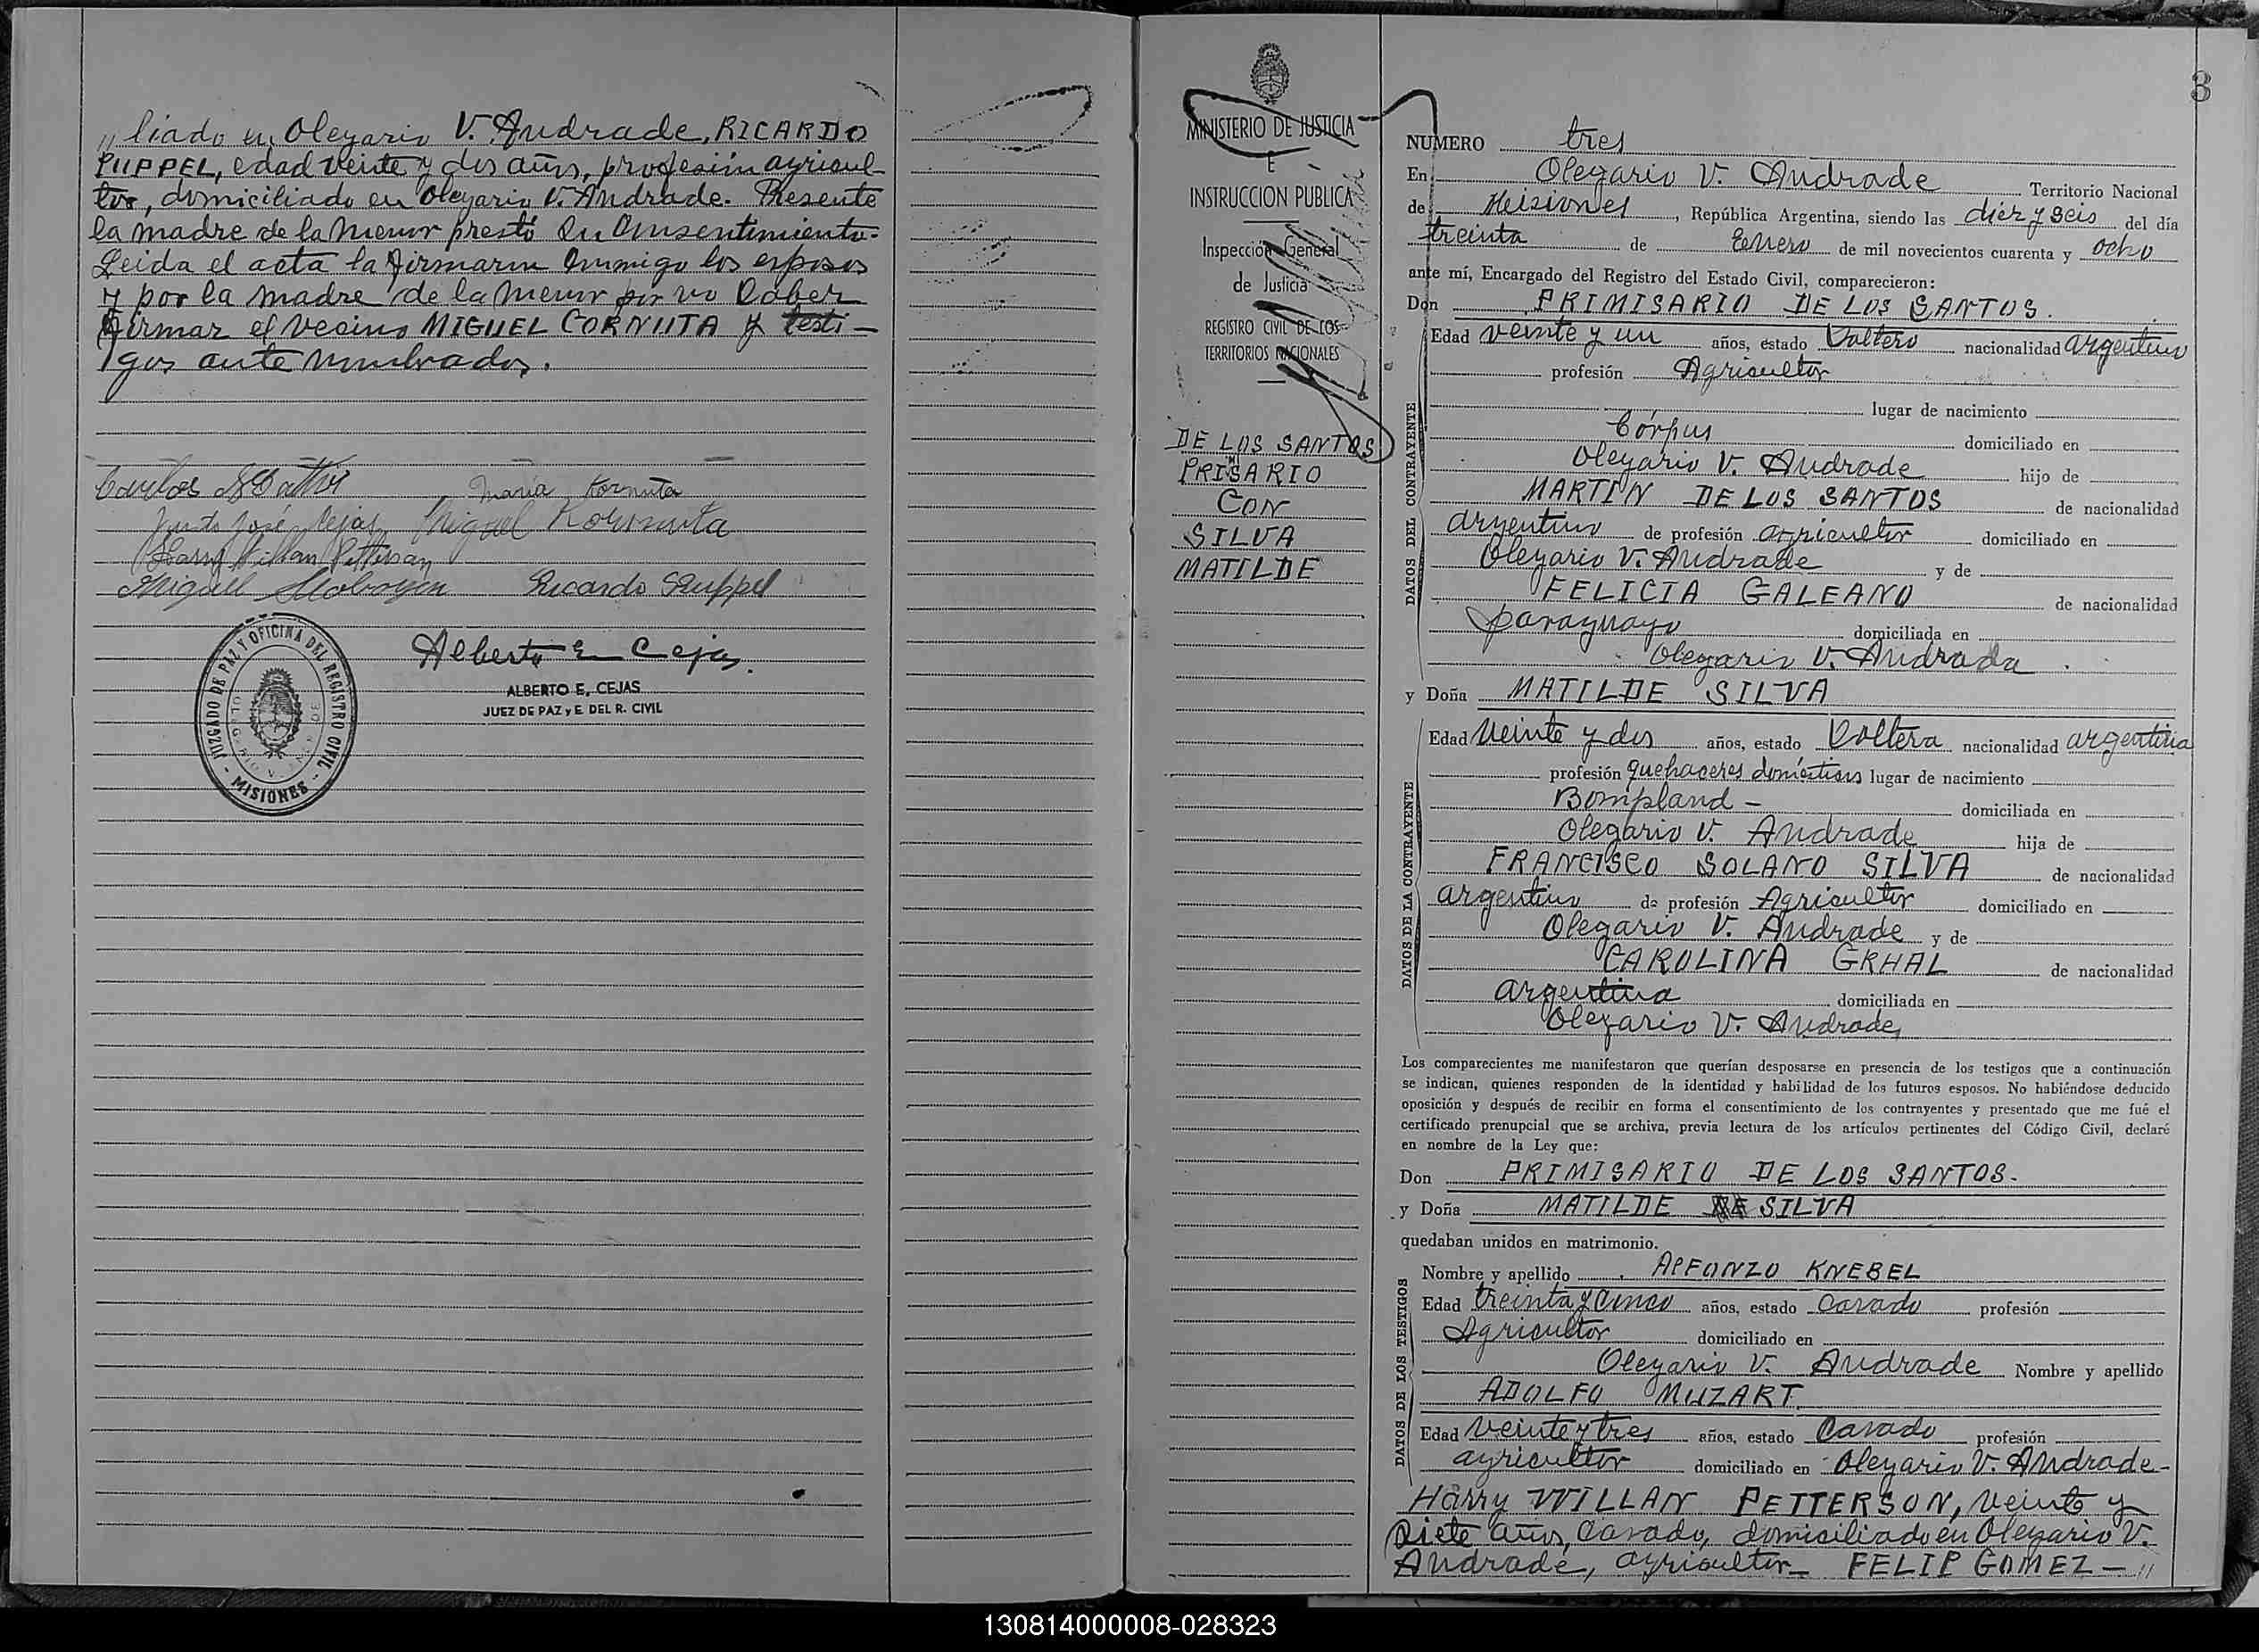 „ liado en Olegario V. Andrade, RICARDO
PUPPEL, edad veinte y dos años, profesión agricul-
tor, domiciliado en Olegario V. Andrade. Presente
la madre de la menor prestó su consentimiento.
Leida el acta la firmaron conmigo los esposos
y por la madre de la menor por no saber
firmar el vecino MIGUEL CORNUTA y testi-
gos ante nombrados.
Carlos
Maria Kornuta
Justo José Cejas
Miguel Kornuta
Harry Willan Petterson
Miguel
Ricardo Puppel
Alberto E. Cejas
ALBERTO E. CEJAS
JUEZ DE PAZ y E. DEL R. CIVIL
JUZGADO DE PAZ Y OFICINA DEL REGISTRO CIVIL
- MISIONES -
MINISTERIO DE JUSTICIA
E
INSTRUCCION PUBLICA
Inspección General
de Justicia
REGISTRO CIVIL DE LOS
TERRITORIOS NACIONALES
DE LOS SANTOS
PRISARIO
CON
SILVA
MATILDE
3
NUMERO tres
En Olegario V. Andrade Territorio Nacional
de Misiones, República Argentina, siendo las diez y seis del día
treinta de Enero de mil novecientos cuarenta y ocho
ante mí, Encargado del Registro del Estado Civil, comparecieron:
Don PRIMISARIO DE LOS SANTOS.
DATOS DEL CONTRAYENTE
Edad veinte y un años, estado Soltero nacionalidad argentino
profesión Agricultor
lugar de nacimiento
Córpus domiciliado en
Olegario V. Andrade hijo de
MARTIN DE LOS SANTOS de nacionalidad
argentino de profesión agricultor domiciliado en
Olegario V. Andrade y de
FELICIA GALEANO de nacionalidad
paraguayo domiciliada en
Olegario V. Andrada.
y Doña MATILDE SILVA
DATOS DE LA CONTRAYENTE
Edad veinte y dos años, estado Soltera nacionalidad argentina
profesión quehaceres domésticos lugar de nacimiento
Bompland - domiciliada en
Olegario V. Andrade hija de
FRANCISCO SOLANO SILVA de nacionalidad
argentino de profesión Agricultor domiciliado en
Olegario V. Andrade y de
CAROLINA GRHAL de nacionalidad
argentina domiciliada en
Olegario V. Andrade
Los comparecientes me manifestaron que querían desposarse en presencia de los testigos que a continuación
se indican, quienes responden de la identidad y habilidad de los futuros esposos. No habiéndose deducido
oposición y después de recibir en forma el consentimiento de los contrayentes y presentado que me fué el
certificado prenupcial que se archiva, previa lectura de los artículos pertinentes del Código Civil, declaré
en nombre de la Ley que:
Don PRIMISARIO DE LOS SANTOS.
y Doña MATILDE SILVA
quedaban unidos en matrimonio.
DATOS DE LOS TESTIGOS
Nombre y apellido ALFONZO KNEBEL
Edad treinta y cinco años, estado casado profesión
Agricultor domiciliado en
Olegario V. Andrade Nombre y apellido
ADOLFO MUZART.
Edad veinte y tres años, estado Casado profesión
agricultor domiciliado en Olegario V. Andrade-
Harry WILLAN PETTERSON, veinte y
siete años, casado, domiciliado en Olegario V.
Andrade, agricultor- FELIP GOMEZ - „
130814000008-028323